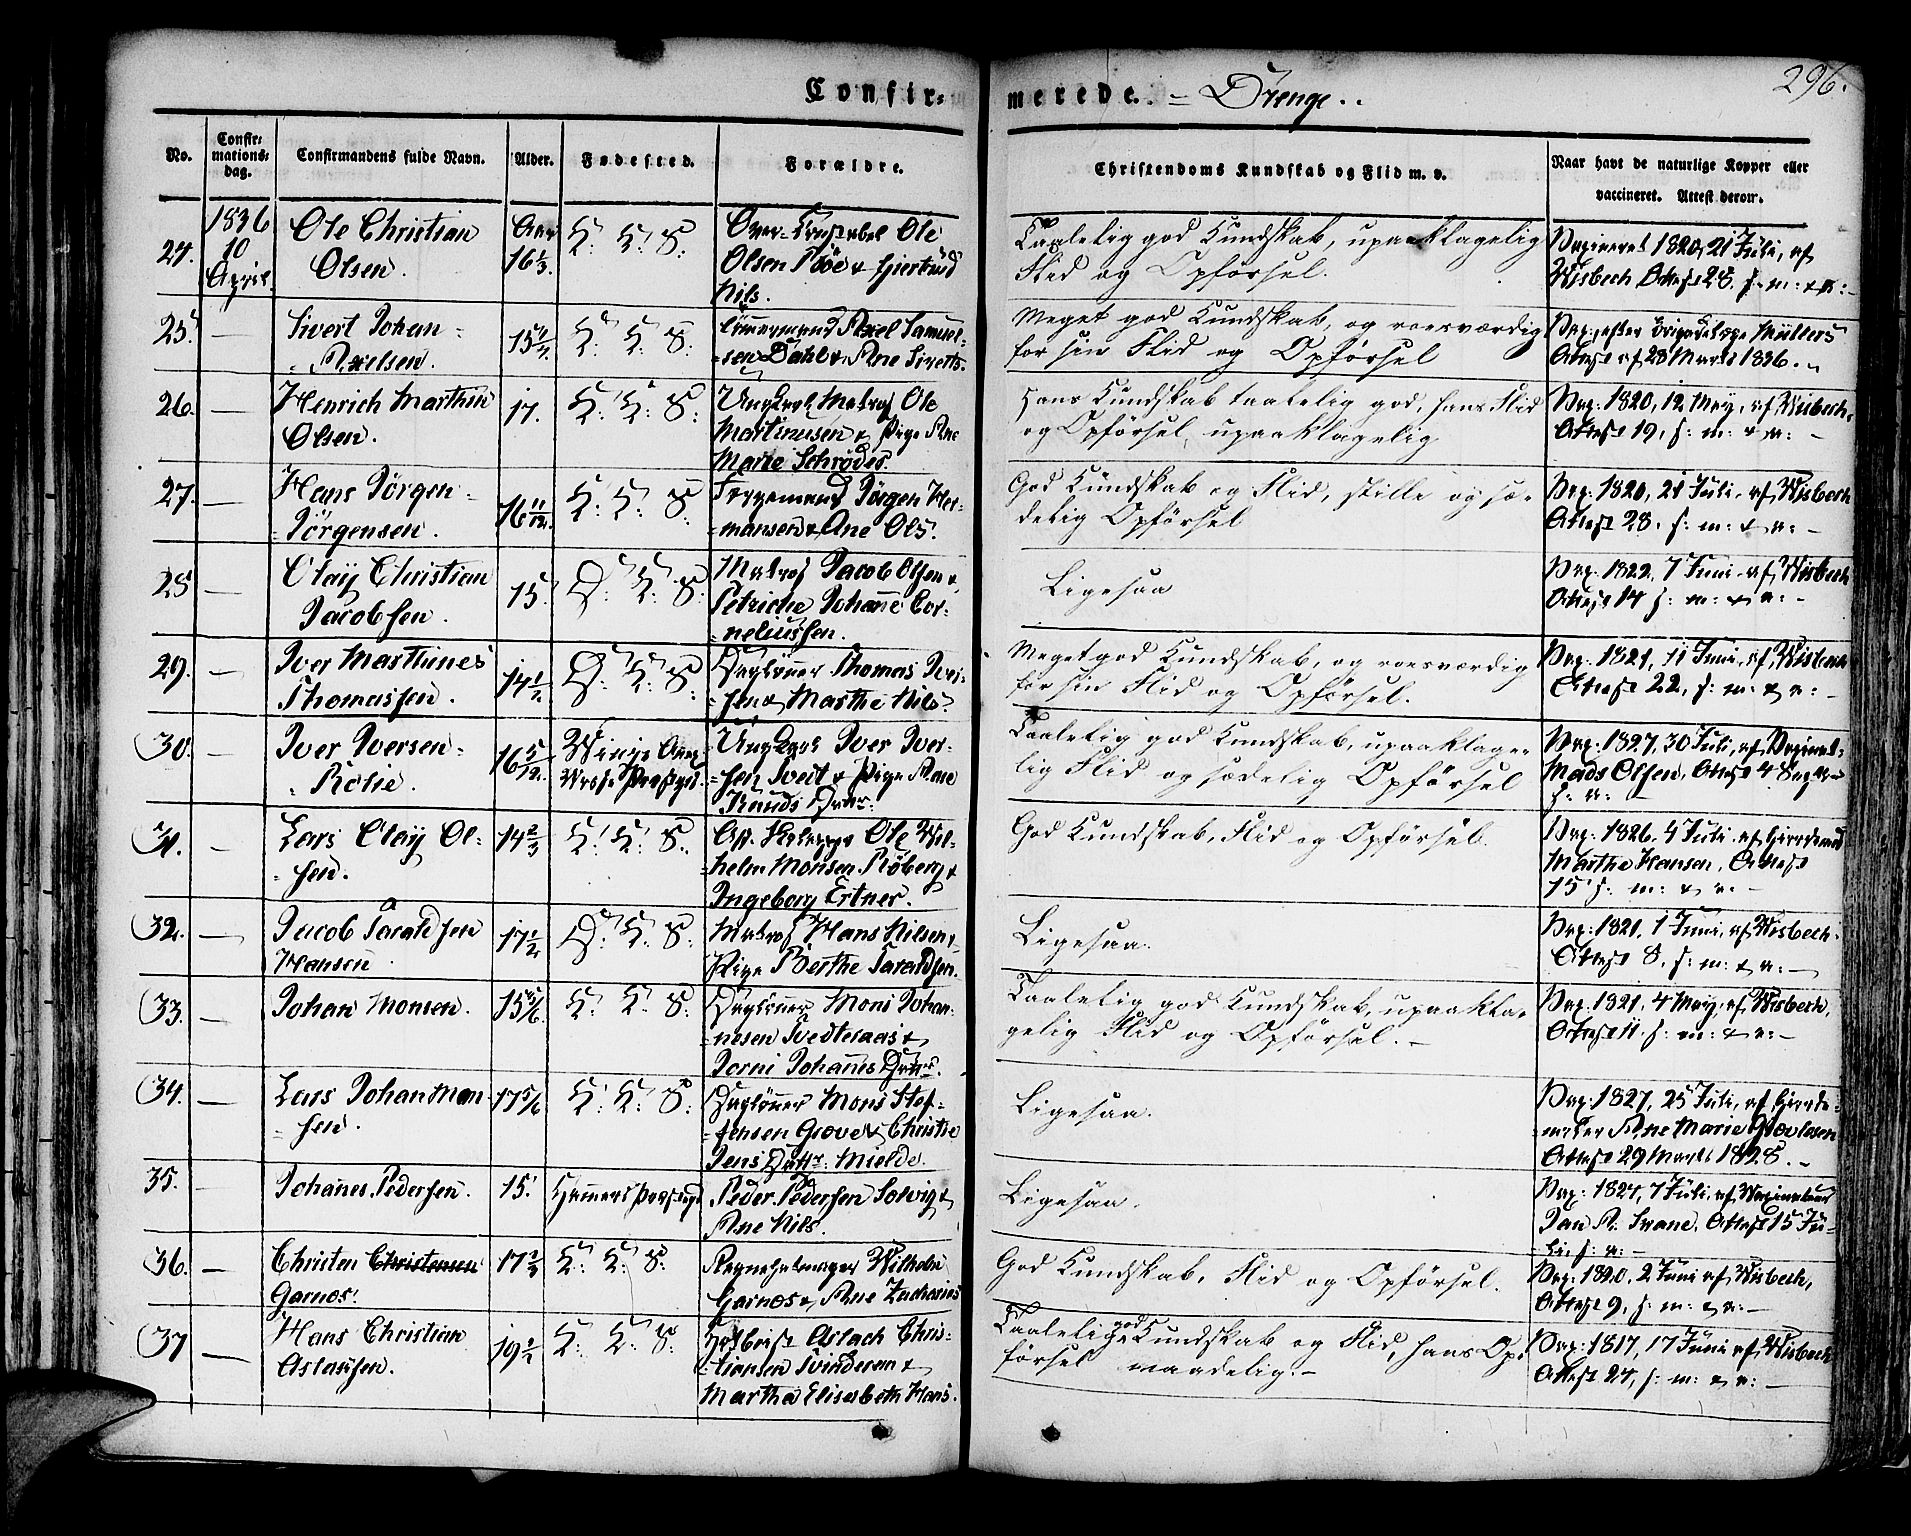 Confir-merede. = Drenge..
296.
No.
Confir-
mations-
dag.
Confirmandens fulde Navn.
Alder.
Fødested.
Forældre.
Christendoms Kundskab og Flid m. v.
Naar havt de naturlige Kopper eller
vaccineret. Attest derom.
24.
1836
10
April
Ole Christian
Olsen.
Aar
16 1/3
K: K: S:
Olsen Bøe & Giertrud
Nils.
Taalelig god Kundskab, upaaklagelig
Flid og Opførsel.
Vaxineret 1820, 21 Juli, af
Wisbech Attest 28. f: m: & n: -
25.
Sivert Johan
Axelsen.
K: K: S:
Tømmermand Axel Samuel-
sen Dahl & Ane Siverts.
Meget god Kundskab, og roesværdig
for sin Flid og Opførsel
Vax: efter Brigadelæge Müllers
Attest af 23 Marts 1836.
26.
Henrich Marthin
Olsen.
17.
K: K: S:
Ungkarl Matros Ole
Martinusen & Pige Ane
Marie Schrøder.
Hans Kundskab taalelig god, hans Flid
og Opførsel upaaklagelig
Vax: 1820, 12 May, af Wisbech.
Attest 19, f: m: & n: -
27.
Hans Jörgen
Jörgensen.
16 11/12.
K: K: S:
Færgemand Jörgen Her-
mansen & Ane Ols.
God Kundskab og Flid, stille og sæ-
delig Opførsel
Vax: 1820, 21 Juli, af Wisbech
Attest 28. f: m: & n: -
28
Olaÿ Christian
Jacobsen.
15.
D: K: S:
Matros Jacob Olsen &
Petriche Johanne Cor-
neliussen.
Ligesaa
Vax: 1822, 7 Juni, af Wisbech
Attest 14 f: m: & n: -
29.
Iver Marthines
Thomassen.
14 1/2
D: K: S:
Dagløner Thomas Iver-
sen & Marthe Nils.
Meget god Kundskab, og roesværdig
for sin Flid og Opførsel.
Vax: 1821, 11 Juni, af Wisbech
Attest 22, f: m: & n: -
30.
Iver Iversen
Rotie.
16 5/12.
Ungkarl Iver Iver-
sen Tveit & Pige Ane
Knuds Datr:
Taalelig god Kundskab, upaaklage-
lig Flid og sædelig Opførsel
Vax: 1827, 30 Juli, af
Mads Olsen, Attest 4
f: n:
31.
Lars Olaÿ Ol-
sen.
14 2/3
K: K: S:
Ole Wil-
helm Monsen Röberg &
Ingeborg Ertner.
God Kundskab, Flid og Opførsel.
Vax: 1826, 4 Juli, af
Marthe Hansen, Attest
15 f: m: & n: -
32.
Jacob Taraldsen
Hansen
17 1/2
D: K: S:
Matros Hans Nilsen,
Pige Berthe Taraldsen.
Ligesaa.
Vax: 1821, 1 Juni, af Wisbech.
Attest 8. f: m: & n: -
33.
Johan Monsen.
15 5/6
K: K: S:
Dagløner Mons Johan-
nesen Tvedteraas &
Jorni Johannes Dattr.
Taalelig god Kundskab, upaakla-
gelig Flid og Opførsel. -
Vax: 1821, 4 May, af Wisbech,
Attest 11. f: m: & n: -
34.
Lars Johan Mon
sen.
17 5/6
K: K: S:
Dagløner Mons Stef-
fensen Grove & Christie
Jens Dattr: Mielde.
Ligesaa.
Vax: 1827, 25 Juli, af Giorde-
moder Ane Marie
Attest 29 Marts 1828. -
35.
Johanes Pedersen.
15.
Hammers Præstegd
Peder Pedersen Solvig &
Ane Nils.
Ligesaa.
Vax: 1827, 7 Juli, af Vaxinateur
Jan A. Svane, Attest 15 Ju-
li, f: n: -
36.
Christen Christensen
Garnos.
17 2/3
K: K: S:
Wilhelm
Garnos & Ane Zacharias
God Kundskab, Flid og Opførsel.
Vax: 1820, 2 Juni af Wisbech,
Attest 9, f: m: & n: -
37
Hans Christian
Aslaksen.
19 1/2
K: K: S:
Aslach Chris-
tiansen Tvinderen &
Martha Elisabeth Hans.
Taalelig god Kundskab og Flid, hans Op-
førsel maadelig. -
Vax: 1817, 17 Juni af Wisbech
Attest 24, f: m: & n: -